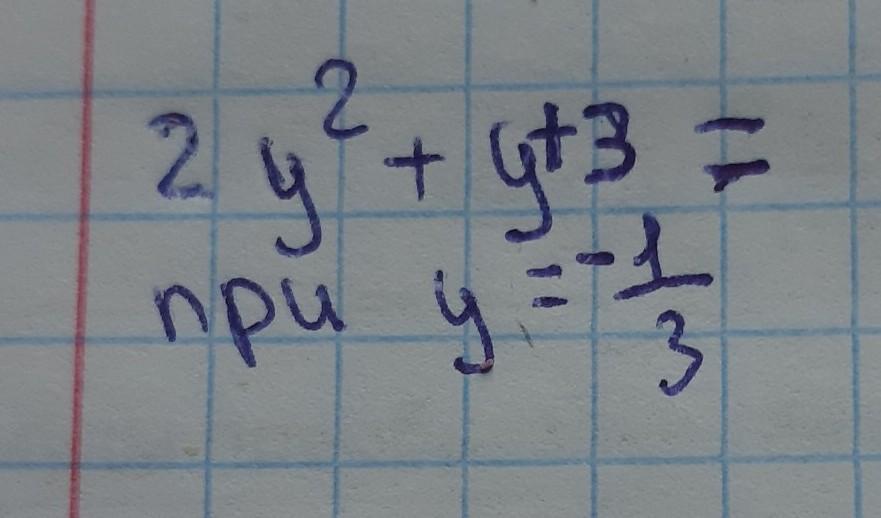 2y² + y + 3 =
при y = -1/3